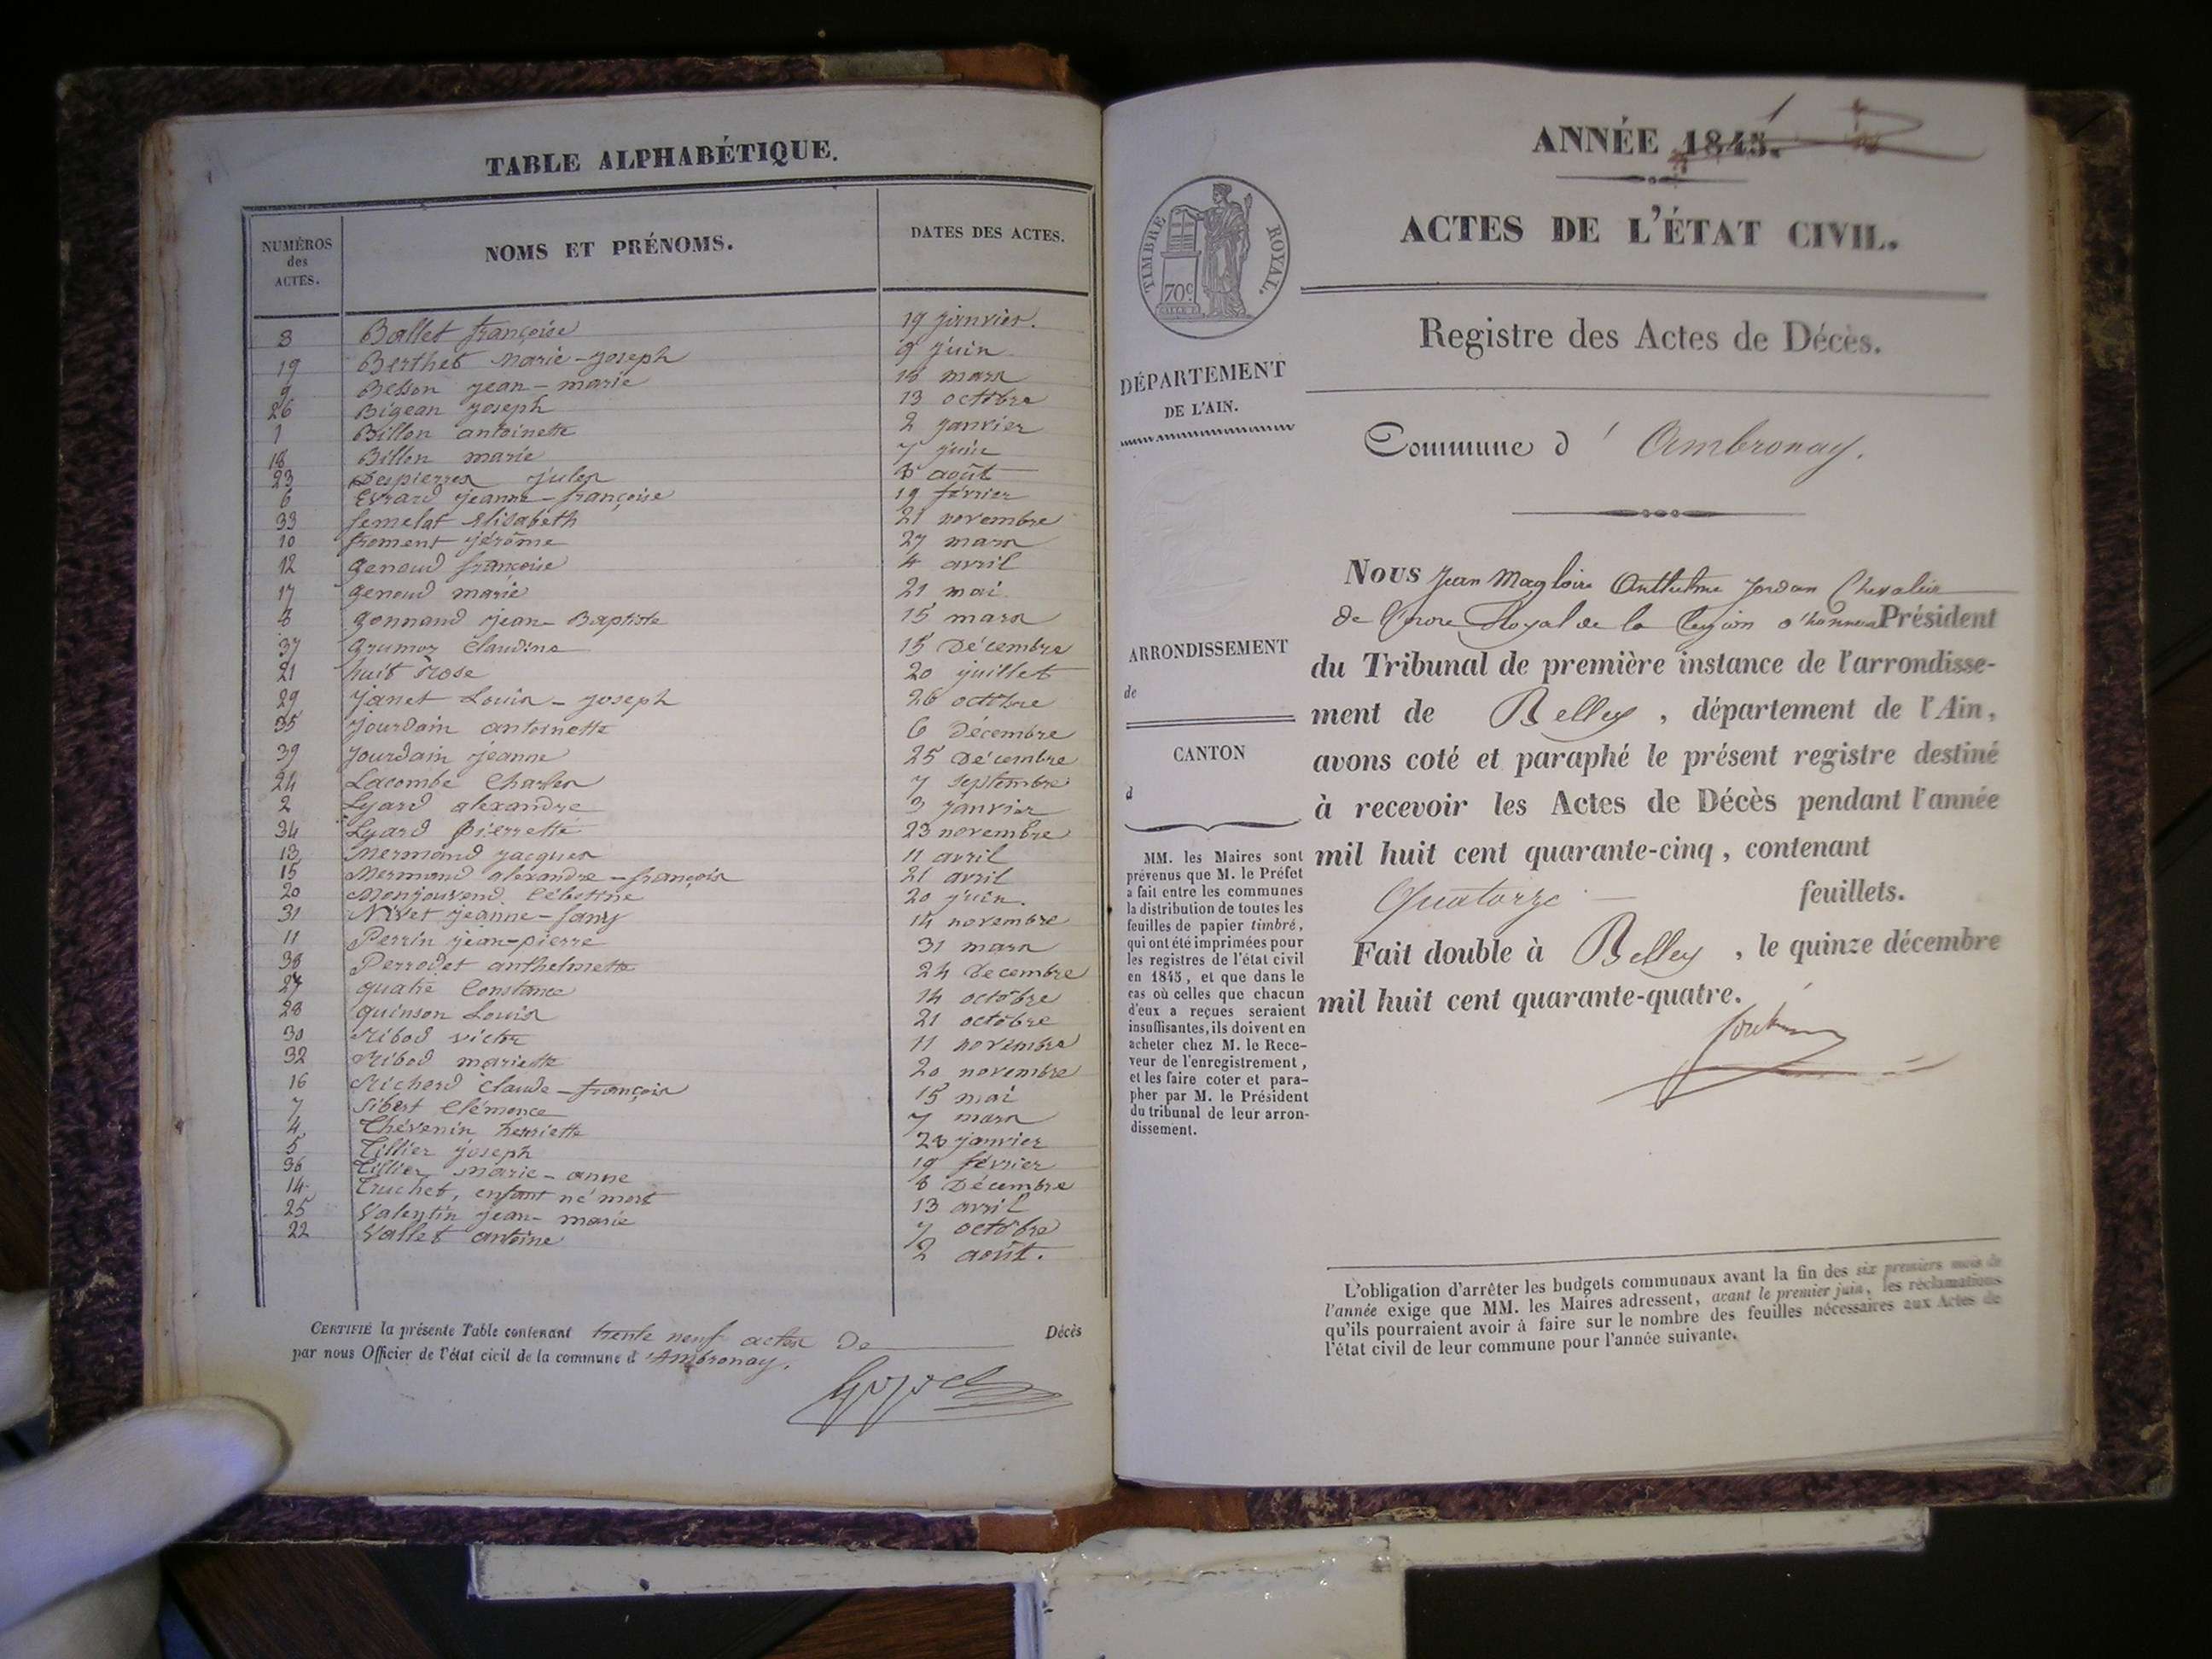 TABLE ALPHABÉTIQUE.
NUMÉROS des ACTES. NOMS ET PRÉNOMS. DATES DES ACTES.
3 Ballet françoise 19 janvier.
19 Berthet marie-joseph 9 juin
9 Besson jean-marie 18 mars
26 Bigean joseph 13 octobre
1 Billon antoinette 2 janvier
18 Billon marie 7 juin
23 Despierres jules 8 août
6 Evrard jeanne-françoise 19 février
33 femelat Elisabeth 21 novembre
10 froment jérôme 27 mars
12 genoud françoise 4 avril
17 genoud marie 21 mai
8 gonnand jean-Baptiste 15 mars
37 grumoz Claudine 15 Décembre
21 huit Rose 20 juillet
29 janet Louis-joseph 26 octobre
35 jourdain antoinette 6 Décembre
39 jourdain jeanne 25 Décembre
24 Lacombe Charles 7 septembre
2 Lyard alexandre 3 janvier
34 Lyard pierrette 23 novembre
13 Mermand jacques 11 avril
15 Mermand alexandre-françois 21 avril
20 Monjouvend Célestine 20 juin.
31 Nivet jeanne-fany 14 novembre
11 Perrin jean-pierre 31 mars
38 Perrodet anthelmette 24 Decembre
27 quatre Constance 14 octobre
28 quinson Louis 21 octobre
30 Ribod victor 11 novembre
32 Ribod mariette 20 novembre
16 Richerd Claude-françois 15 mai
7 Sibert Clémence 7 mars
4 Thévenin henriette 28 janvier
5 Tillier joseph 19 février
36 Tillier marie-anne 8 Décembre
14 Truchet, enfant né mort 13 avril
25 Valentin jean-marie 7 octobre
22 Vallet antoine 2 août.
CERTIFIÉ la présente Table contenant trente neuf actes De Décès
par nous Officier de l'état civil de la commune d'Ambronay.
ANNÉE 1845.
ACTES DE L'ÉTAT CIVIL.
TIMBRE ROYAL.
70c
Registre des Actes de Décès.
DÉPARTEMENT
DE L'AIN.
Commune d'Ambronay.
ARRONDISSEMENT
de
CANTON
d
MM. les Maires sont
prévenus que M. le Préfet
a fait entre les communes
la distribution de toutes les
feuilles de papier timbré,
qui ont été imprimées pour
les registres de l'état civil
en 1845, et que dans le
cas où celles que chacun
d'eux a reçues seraient
insuffisantes, ils doivent en
acheter chez M. le Rece-
veur de l'enregistrement,
et les faire coter et para-
pher par M. le Président
du tribunal de leur arron-
dissement.
Nous Jean Magloire Anthelme Jordan Chevalier
de l'ordre Royal de la Légion d'honneur Président
du Tribunal de première instance de l'arrondisse-
ment de Belley, département de l'Ain,
avons coté et paraphé le présent registre destiné
à recevoir les Actes de Décès pendant l'année
mil huit cent quarante-cinq, contenant
Quatorze feuillets.
Fait double à Belley, le quinze décembre
mil huit cent quarante-quatre.
L'obligation d'arrêter les budgets communaux avant la fin des six premiers mois de
l'année exige que MM. les Maires adressent, avant le premier juin, les réclamations
qu'ils pourraient avoir à faire sur le nombre des feuilles nécessaires aux Actes de
l'état civil de leur commune pour l'année suivante.